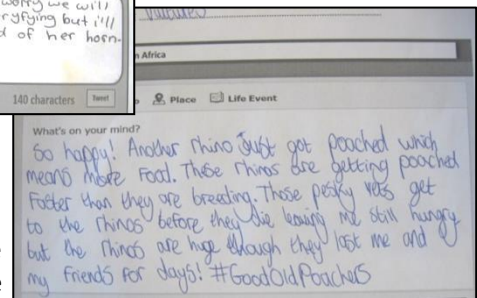 worry we will
ryfying but i'll
d of her horn.
140 characters Tweet
n Africa
Place Life Event
What's on your mind?
So happy! Another rhino just got poached which
means more food. These rhinos are getting poached
faster than they are breeding. Those pesky vets get
to the rhinos before they die leaving me still hungry
but the rhinos are huge though they last me and
my friends for days! #GoodOldPoachers